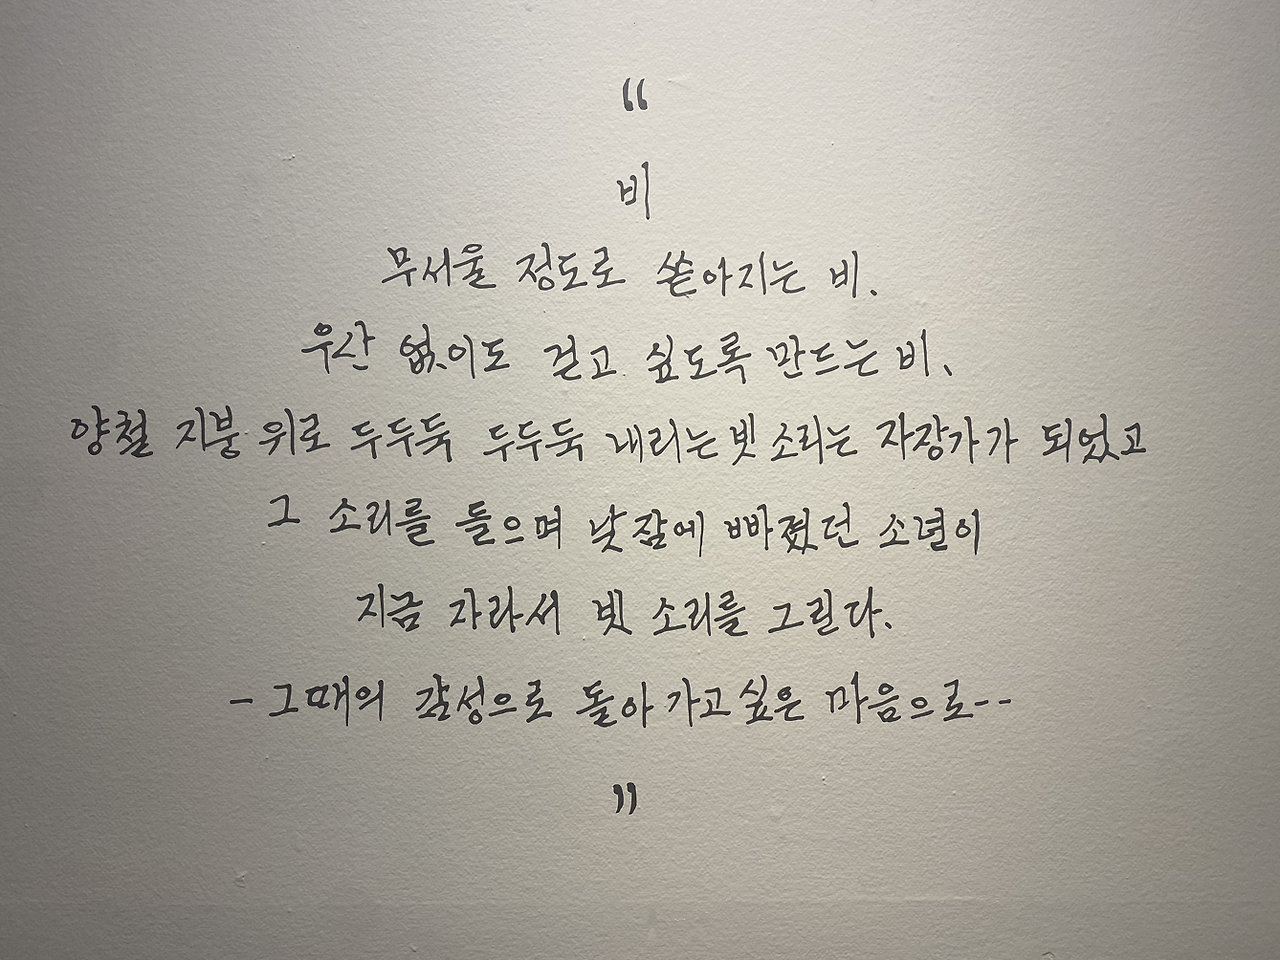 “
비
무서울 정도로 쏟아지는 비.
우산 없이도 걷고 싶도록 만드는 비.
양철 지붕 위로 두두둑 두두둑 내리는 빗 소리는 자장가가 되었고
그 소리를 들으며 낮잠에 빠졌던 소년이
지금 자라서 빗 소리를 그린다.
- 그때의 감성으로 돌아 가고 싶은 마음으로--
”